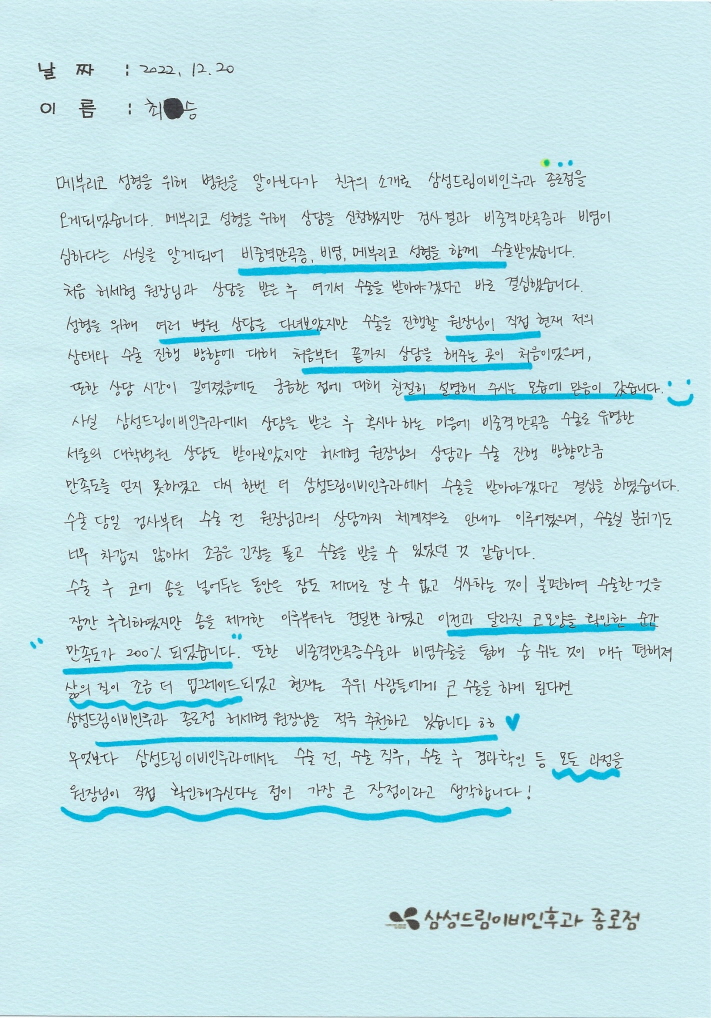 날 짜 : 2022. 12. 20
이 름 : 최 승
메부리코 성형을 위해 병원을 알아보다가 친구의 소개로 삼성드림이비인후과 종로점을
오게되었습니다. 메부리코 성형을 위해 상담을 신청했지만 검사결과 비중격만곡증과 비염이
심하다는 사실을 알게되어 비중격만곡증, 비염, 메부리코 성형을 함께 수술받았습니다.
처음 허세형 원장님과 상담을 받은 후 여기서 수술을 받아야겠다고 바로 결심했습니다.
성형을 위해 여러 병원 상담을 다녀보았지만 수술을 진행할 원장님이 직접 현재 저의
상태와 수술 진행 방향에 대해 처음부터 끝까지 상담을 해주는 곳이 처음이었으며,
또한 상담 시간이 길어졌음에도 궁금한 점에 대해 친절히 설명해 주시는 모습에 믿음이 갔습니다.
사실 삼성드림이비인후과에서 상담을 받은 후 혹시나 하는 마음에 비중격만곡증 수술로 유명한
서울의 대학병원 상담도 받아보았지만 허세형 원장님의 상담과 수술 진행 방향만큼
만족도를 얻지 못하였고 다시 한번 더 삼성드림이비인후과에서 수술을 받아야겠다고 결심을 하였습니다.
수술 당일 검사부터 수술 전 원장님과의 상담까지 체계적으로 안내가 이루어졌으며, 수술실 분위기도
너무 차갑지 않아서 조금은 긴장을 풀고 수술을 받을 수 있었던 것 같습니다.
수술 후 코에 솜을 넣어두는 동안은 잠도 제대로 잘 수 없고 식사하는 것이 불편하여 수술한 것을
잠깐 후회하였지만 솜을 제거한 이후부터는 견딜만 하였고 이전과 달라진 코모양을 확인한 순간
만족도가 200% 되었습니다. 또한 비중격만곡증수술과 비염수술을 통해 숨 쉬는 것이 매우 편해져
삶의 질이 조금 더 업그레이드되었고 현재는 주위 사람들에게 코 수술을 하게 된다면
삼성드림이비인후과 종로점 허세형 원장님을 적극 추천하고 있습니다 ㅎㅎ
무엇보다 삼성드림이비인후과에서는 수술 전, 수술 직후, 수술 후 경과확인 등 모든 과정을
원장님이 직접 확인해주신다는 점이 가장 큰 장점이라고 생각합니다!
삼성드림이비인후과 종로점